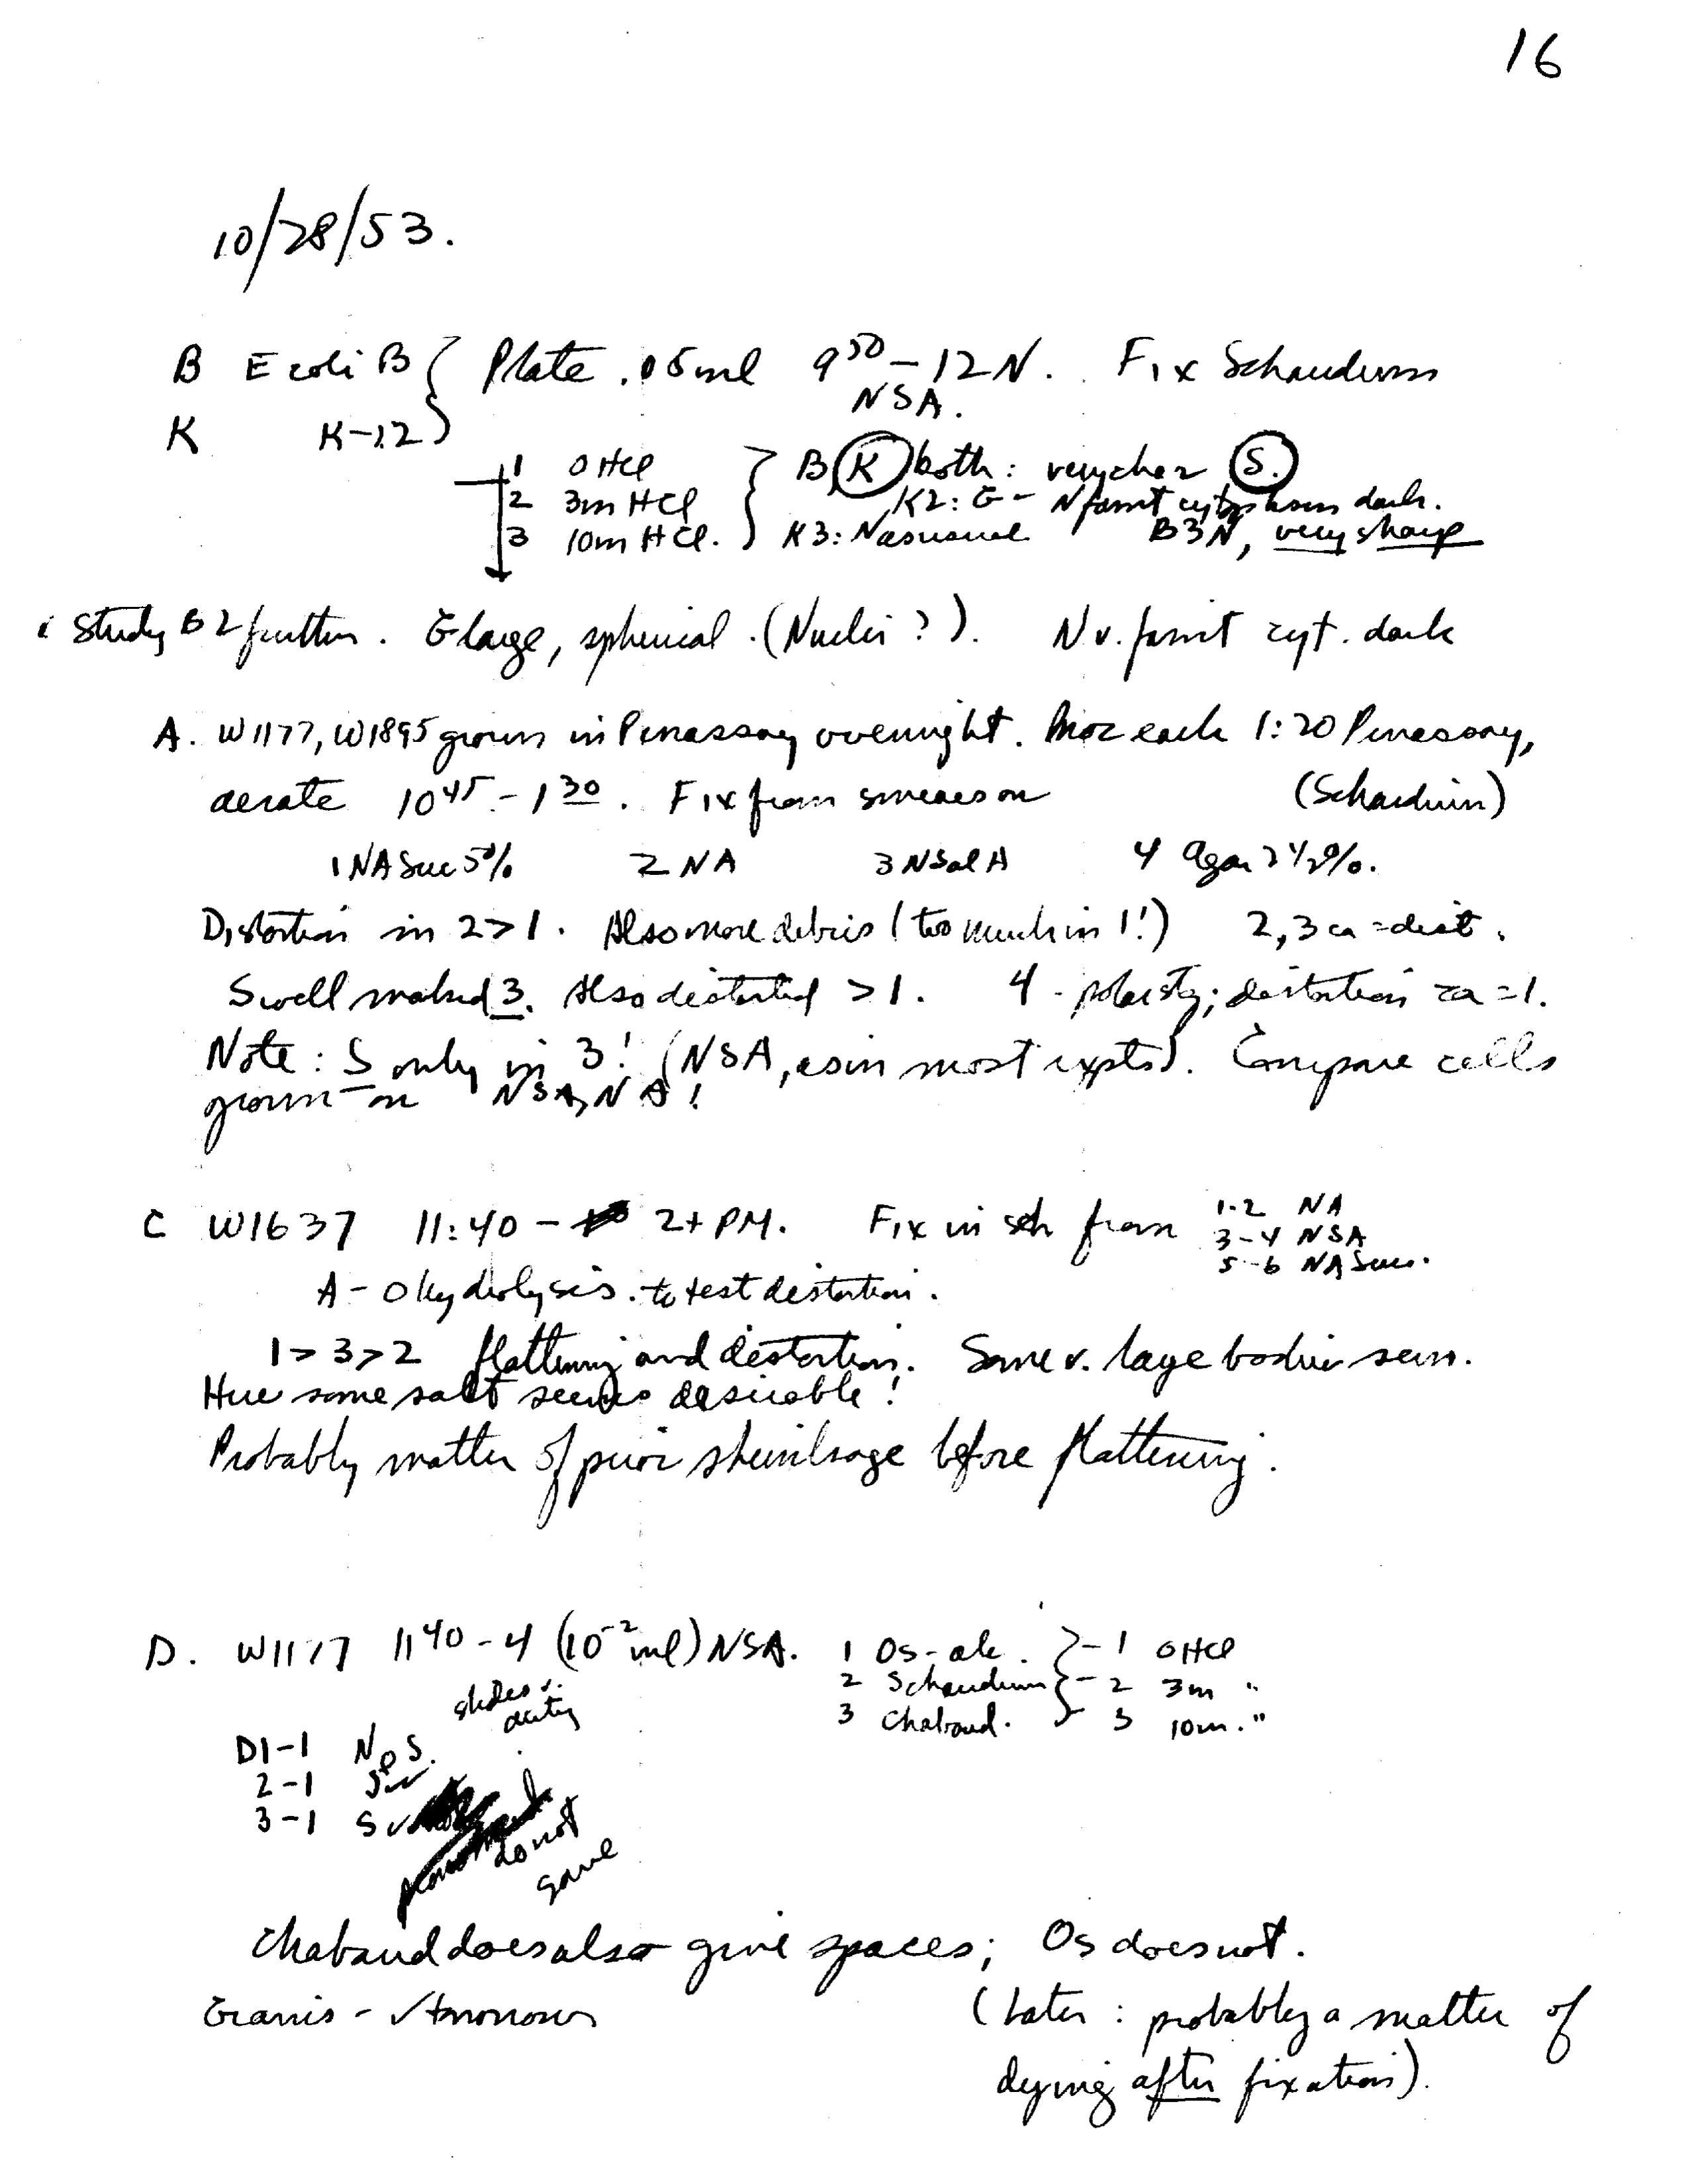 16
10/28/53.
B E coli B } Plate .05 ml 9 50 – 12 N. Fix Schaudinn
NSA.
K K-12
1 0 HCl } B K both: very clear S.
2 3m HCl K2: G – N faint cytoplasm dark.
3 10m HCl. K3: N as usual B3 N, very sharp
Study B2 further. G large, spherical. (Nuclei?). N v. faint cyt. dark
A. W1177, W1895 grown in Penassay overnight. each 1:20 Penassay,
aerate 10 45 – 1 30. Fix from smears on (Schaudinn)
1 NA Suc 5% 2 NA 3 NSal A 4 Agar 2 1/2%.
Distortion in 2 > 1. Also more debris (too much in 1!) 2, 3 ca = dist.
Swell marked 3. Also distorted > 1. 4 - ; distortion ca = 1.
Note: S only in 3! (NSA, as in most expts). Compare cells
grown on NSA, NA!
C W1637 11:40 – 2+ PM. Fix in sch from 1-2 NA
3-4 NSA
5-6 NA Suc.
A – 0 hydrolysis. to test distortion.
1 > 3 > 2 flattening and distortion. Some v. large bodies seen.
Here some salt seems desirable!
Probably matter of prior shrinkage before flattening.
D. W1177 11 40 – 4 (10⁻² ml) NSA. 1 Os- alc. } – 1 0 HCl
2 Schaudinn – 2 3m "
3 Chabaud. 3 10m. "
slides v.
dirty
D1-1 No S.
2-1 S ✓
3-1 S ✓
do not
save
Chabaud does also give spaces; Os does not.
(Later: probably a matter of
drying after fixation).